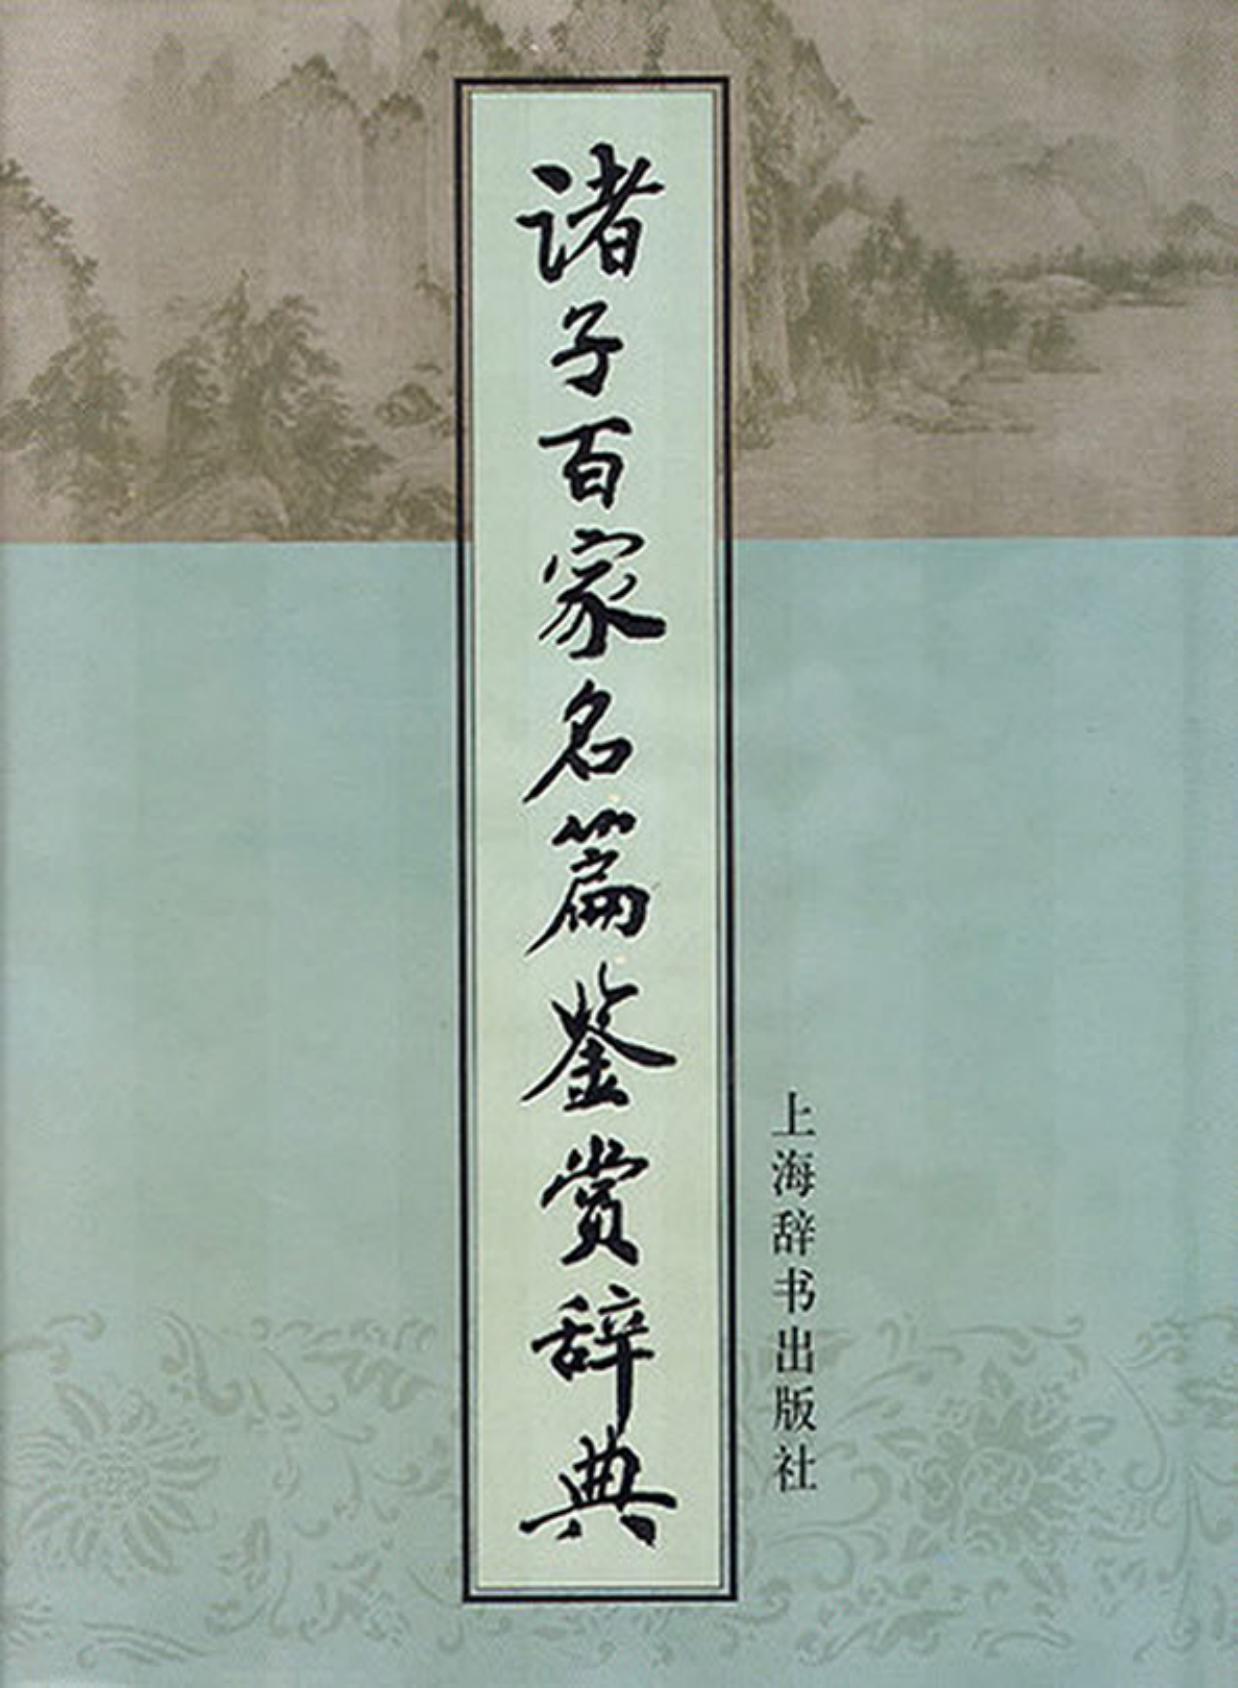 诸子百家名篇鉴赏辞典
上海辞书出版社